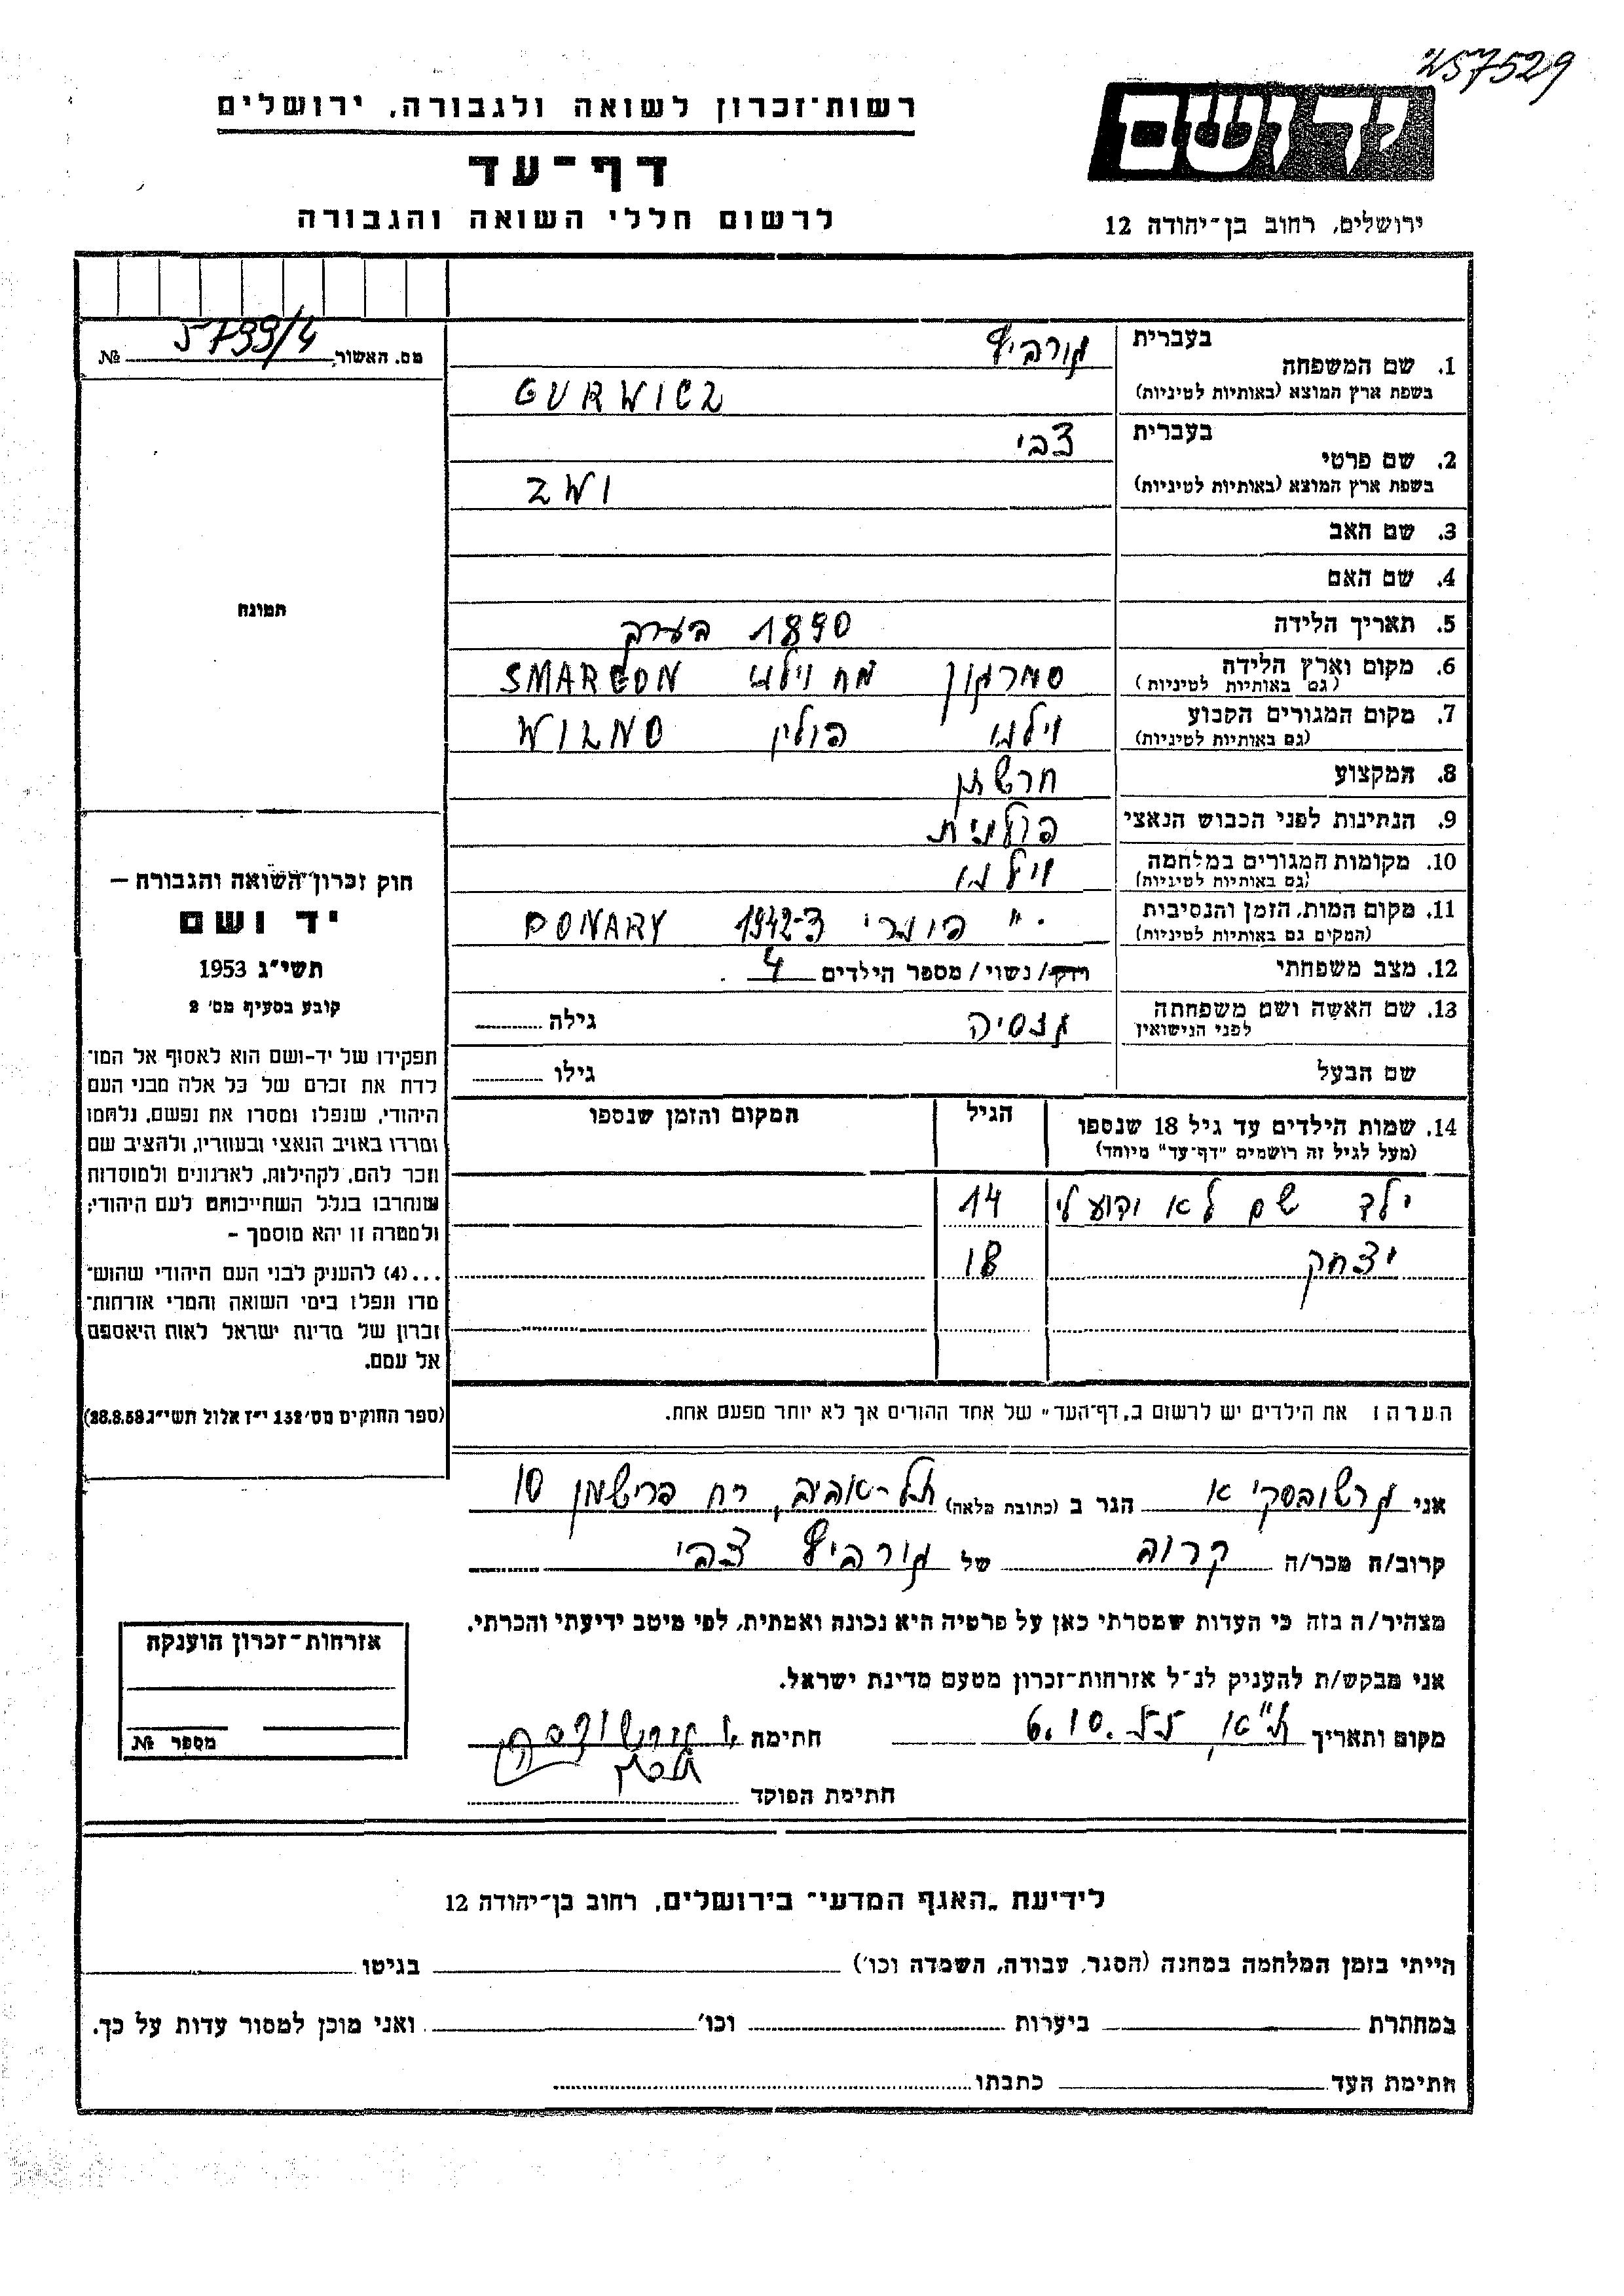 257529
יד ושם
ירושלים, רחוב בן-יהודה 12
רשות-זכרון לשואה ולגבורה, ירושלים
דף-עד
לרשום חללי השואה והגבורה
מס. האשור № 5799/4
תמונה
1. שם המשפחה
בעברית גורביץ
בשפת ארץ המוצא (באותיות לטיניות) GURWICZ
2. שם פרטי
בעברית צבי
בשפת ארץ המוצא (באותיות לטיניות) ZWI
3. שם האב
4. שם האם
5. תאריך הלידה 1890 בערך
6. מקום וארץ הלידה סמרגון מח וילנו SMARGON
(גם באותיות לטיניות)
7. מקום המגורים הקבוע וילנו פולין WILNO
(גם באותיות לטיניות)
8. המקצוע חרשתן
9. הנתינות לפני הכבוש הנאצי פולנית
10. מקומות המגורים במלחמה וילנו
(גם באותיות לטיניות)
11. מקום המות, הזמן והנסיבות פונרי 1942-3 PONARY
(המקום גם באותיות לטיניות)
12. מצב משפחתי רוק/ נשוי / מספר הילדים 4
13. שם האשה ושם משפחתה גילה
לפני הנישואין
שם הבעל גילו
14. שמות הילדים עד גיל 18 שנספו הגיל המקום והזמן שנספו
(מעל לגיל זה רושמים "דף-עד" מיוחד)
ילד שם לא ידוע לי 14
יצחק 18
הערה: את הילדים יש לרשום ב"דף-העד" של אחד ההורים אך לא יותר מפעם אחת.
חוק זכרון השואה והגבורה –
יד ושם
תשי"ג 1953
קובע בסעיף מס' 2
תפקידו של יד-ושם הוא לאסוף אל המו־
לדת את זכרם של כל אלה מבני העם
היהודי, שנפלו ומסרו את נפשם, נלחמו
ומרדו באויב הנאצי ובעוזריו, ולהציב שם
וזכר להם, לקהילות, לארגונים ולמוסדות
שנחרבו בגלל השתייכותם לעם היהודי;
ולמטרה זו יהא מוסמך –
...(4) להעניק לבני העם היהודי שהוש־
מדו ונפלו בימי השואה והמרי אזרחות־
זכרון של מדינת ישראל לאות היאספם
אל עמם.
(ספר החוקים מס' 132 י"ז אלול תשי"ג 28.8.53)
אני גרשובסקי א הגר ב (כתובת מלאה) תל-אביב, רח פרישמן 10
קרוב/ה מכר/ה קרוב של גורביץ צבי
מצהיר/ה בזה כי העדות שמסרתי כאן על פרטיה היא נכונה ואמתית, לפי מיטב ידיעתי והכרתי.
אני מבקש/ת להעניק לנ"ל אזרחות-זכרון מטעם מדינת ישראל.
מקום ותאריך ת"א, 6.10.55 חתימה
חתימת הפוקד
אזרחות-זכרון הוענקה
מספר №
לידיעת "האגף המדעי" בירושלים, רחוב בן-יהודה 12
הייתי בזמן המלחמה במחנה (הסגר, עבודה, השמדה וכו') בגיטו
במחתרת ביערות וכו' ואני מוכן למסור עדות על כך.
חתימת העד כתבתו